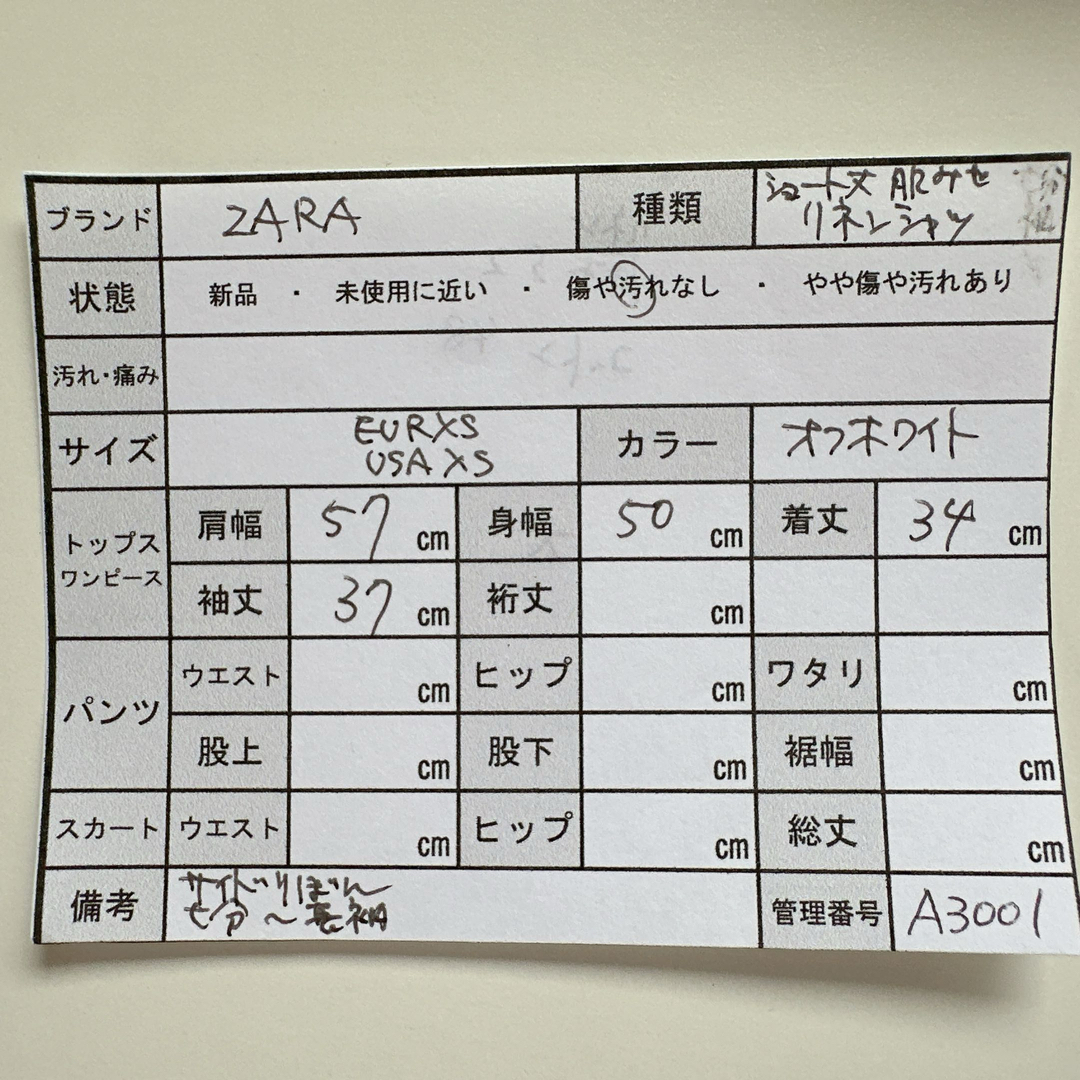 ブランド ZARA 種類 ショート丈 肌みせ
リネンシャツ
状態 新品 ・ 未使用に近い ・ 傷や汚れなし ・ やや傷や汚れあり
汚れ・痛み
サイズ EUR XS カラー オフホワイト
USA XS
トップス 肩幅 57 cm 身幅 50 cm 着丈 34 cm
ワンピース 袖丈 37 cm 裄丈 cm
パンツ ウエスト cm ヒップ cm ワタリ cm
股上 cm 股下 cm 裾幅 cm
スカート ウエスト cm ヒップ cm 総丈 cm
備考 サイドりぼん 管理番号 A3001
七分〜長袖